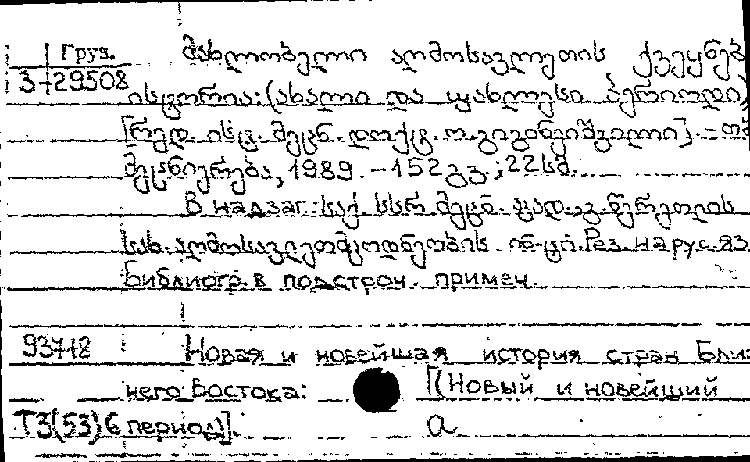 Груз. მახლობელი აღმოსავლეთის ქვეყნებ
3-29508
ისტორია: (ახალი და უახლესი პერიოდი)
[რედ. ისტ. მეცნ. დოქტ. ო. გიგინეიშვილი]. - თბ
მეცნიერება, 1989. - 152 გვ.; 22 სმ.
В надзаг.: საქ. სსრ მეცნ. აკად., გ. წერეთლის
სახ. აღმოსავლეთმცოდნეობის ინ-ტი. Рез. на рус. яз.
Библиогр. в подстроч. примеч.
93712 Новая и новейшая история стран Ближ
него Востока: [(Новый и новейший
Т3(53)6 период)]. а